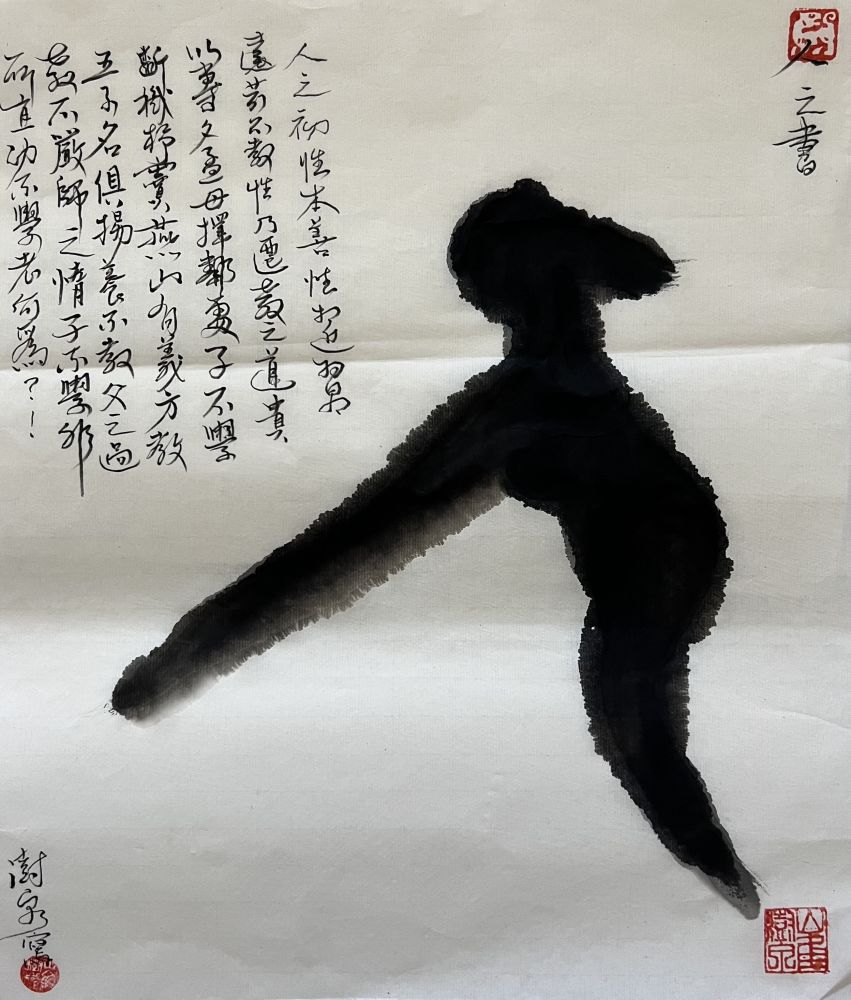 人之書
人之初性本善性相近習
遠苟不教性乃遷教之道貴
以專昔孟母擇鄰處子不學
斷機杼竇燕山有義方教
五子名俱揚養不教父之過
教不嚴師之惰子不學非
所宜幼不學老何爲?!
人
澍泉寫